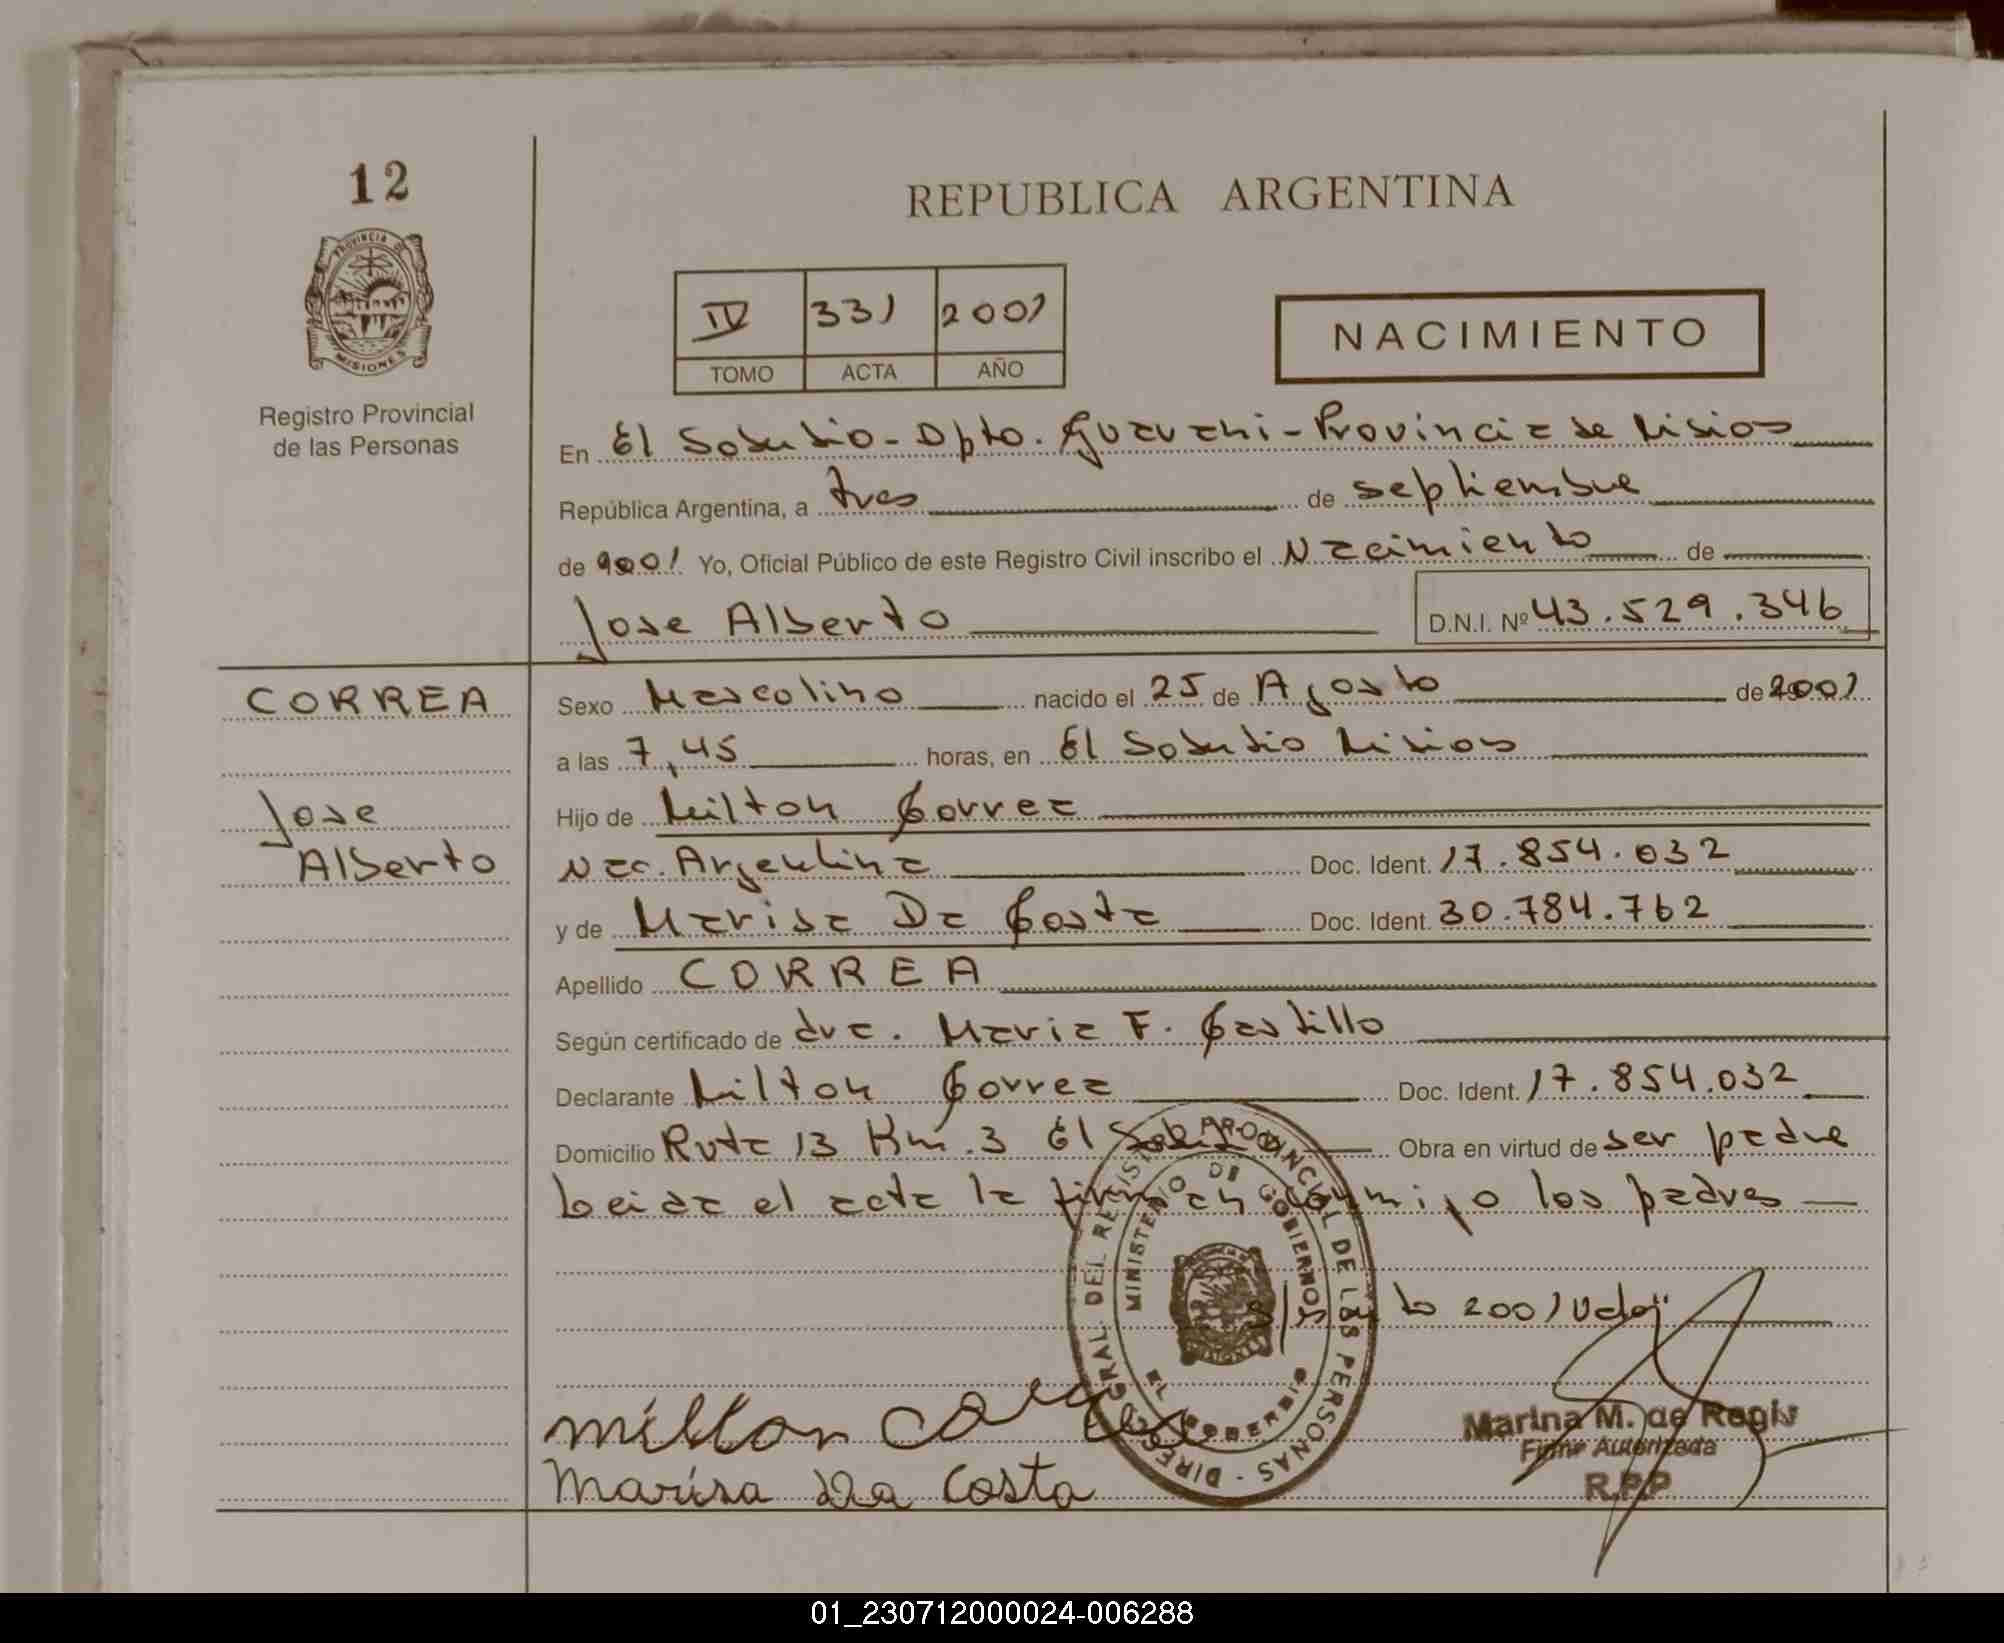 12
REPUBLICA ARGENTINA
PROVINCIA DE
MISIONES
Registro Provincial
de las Personas
IV 331 2001
TOMO ACTA AÑO
NACIMIENTO
En El Soberbio - Dpto. Guarani - Provincia de Misiones
República Argentina, a tres de septiembre
de 2001 Yo, Oficial Público de este Registro Civil inscribo el Nacimiento de
Jose Alberto D.N.I. Nº 43.529.346
CORREA
Jose
Alberto
Sexo Masculino nacido el 25 de Agosto de 2001
a las 7,45 horas, en El Soberbio Misiones
Hijo de Milton Correa
Nac. Argentina Doc. Ident. 17.854.032
y de Marisa Da Costa Doc. Ident. 30.784.762
Apellido CORREA
Según certificado de dra. Maria F. Castillo
Declarante Milton Correa Doc. Ident. 17.854.032
Domicilio Ruta 13 Km. 3 El Soberbio Obra en virtud de ser padre
Leida el acta la firman conmigo los padres
2001 Vale"
DIREC. GRAL. DEL REGISTRO PROVINCIAL DE LAS PERSONAS
MINISTERIO DE GOBIERNO
EL SOBERBIO
milton Correa
Marisa Da Costa
Marina M. de Regis
Firma Autorizada
R.P.P
01_230712000024-006288